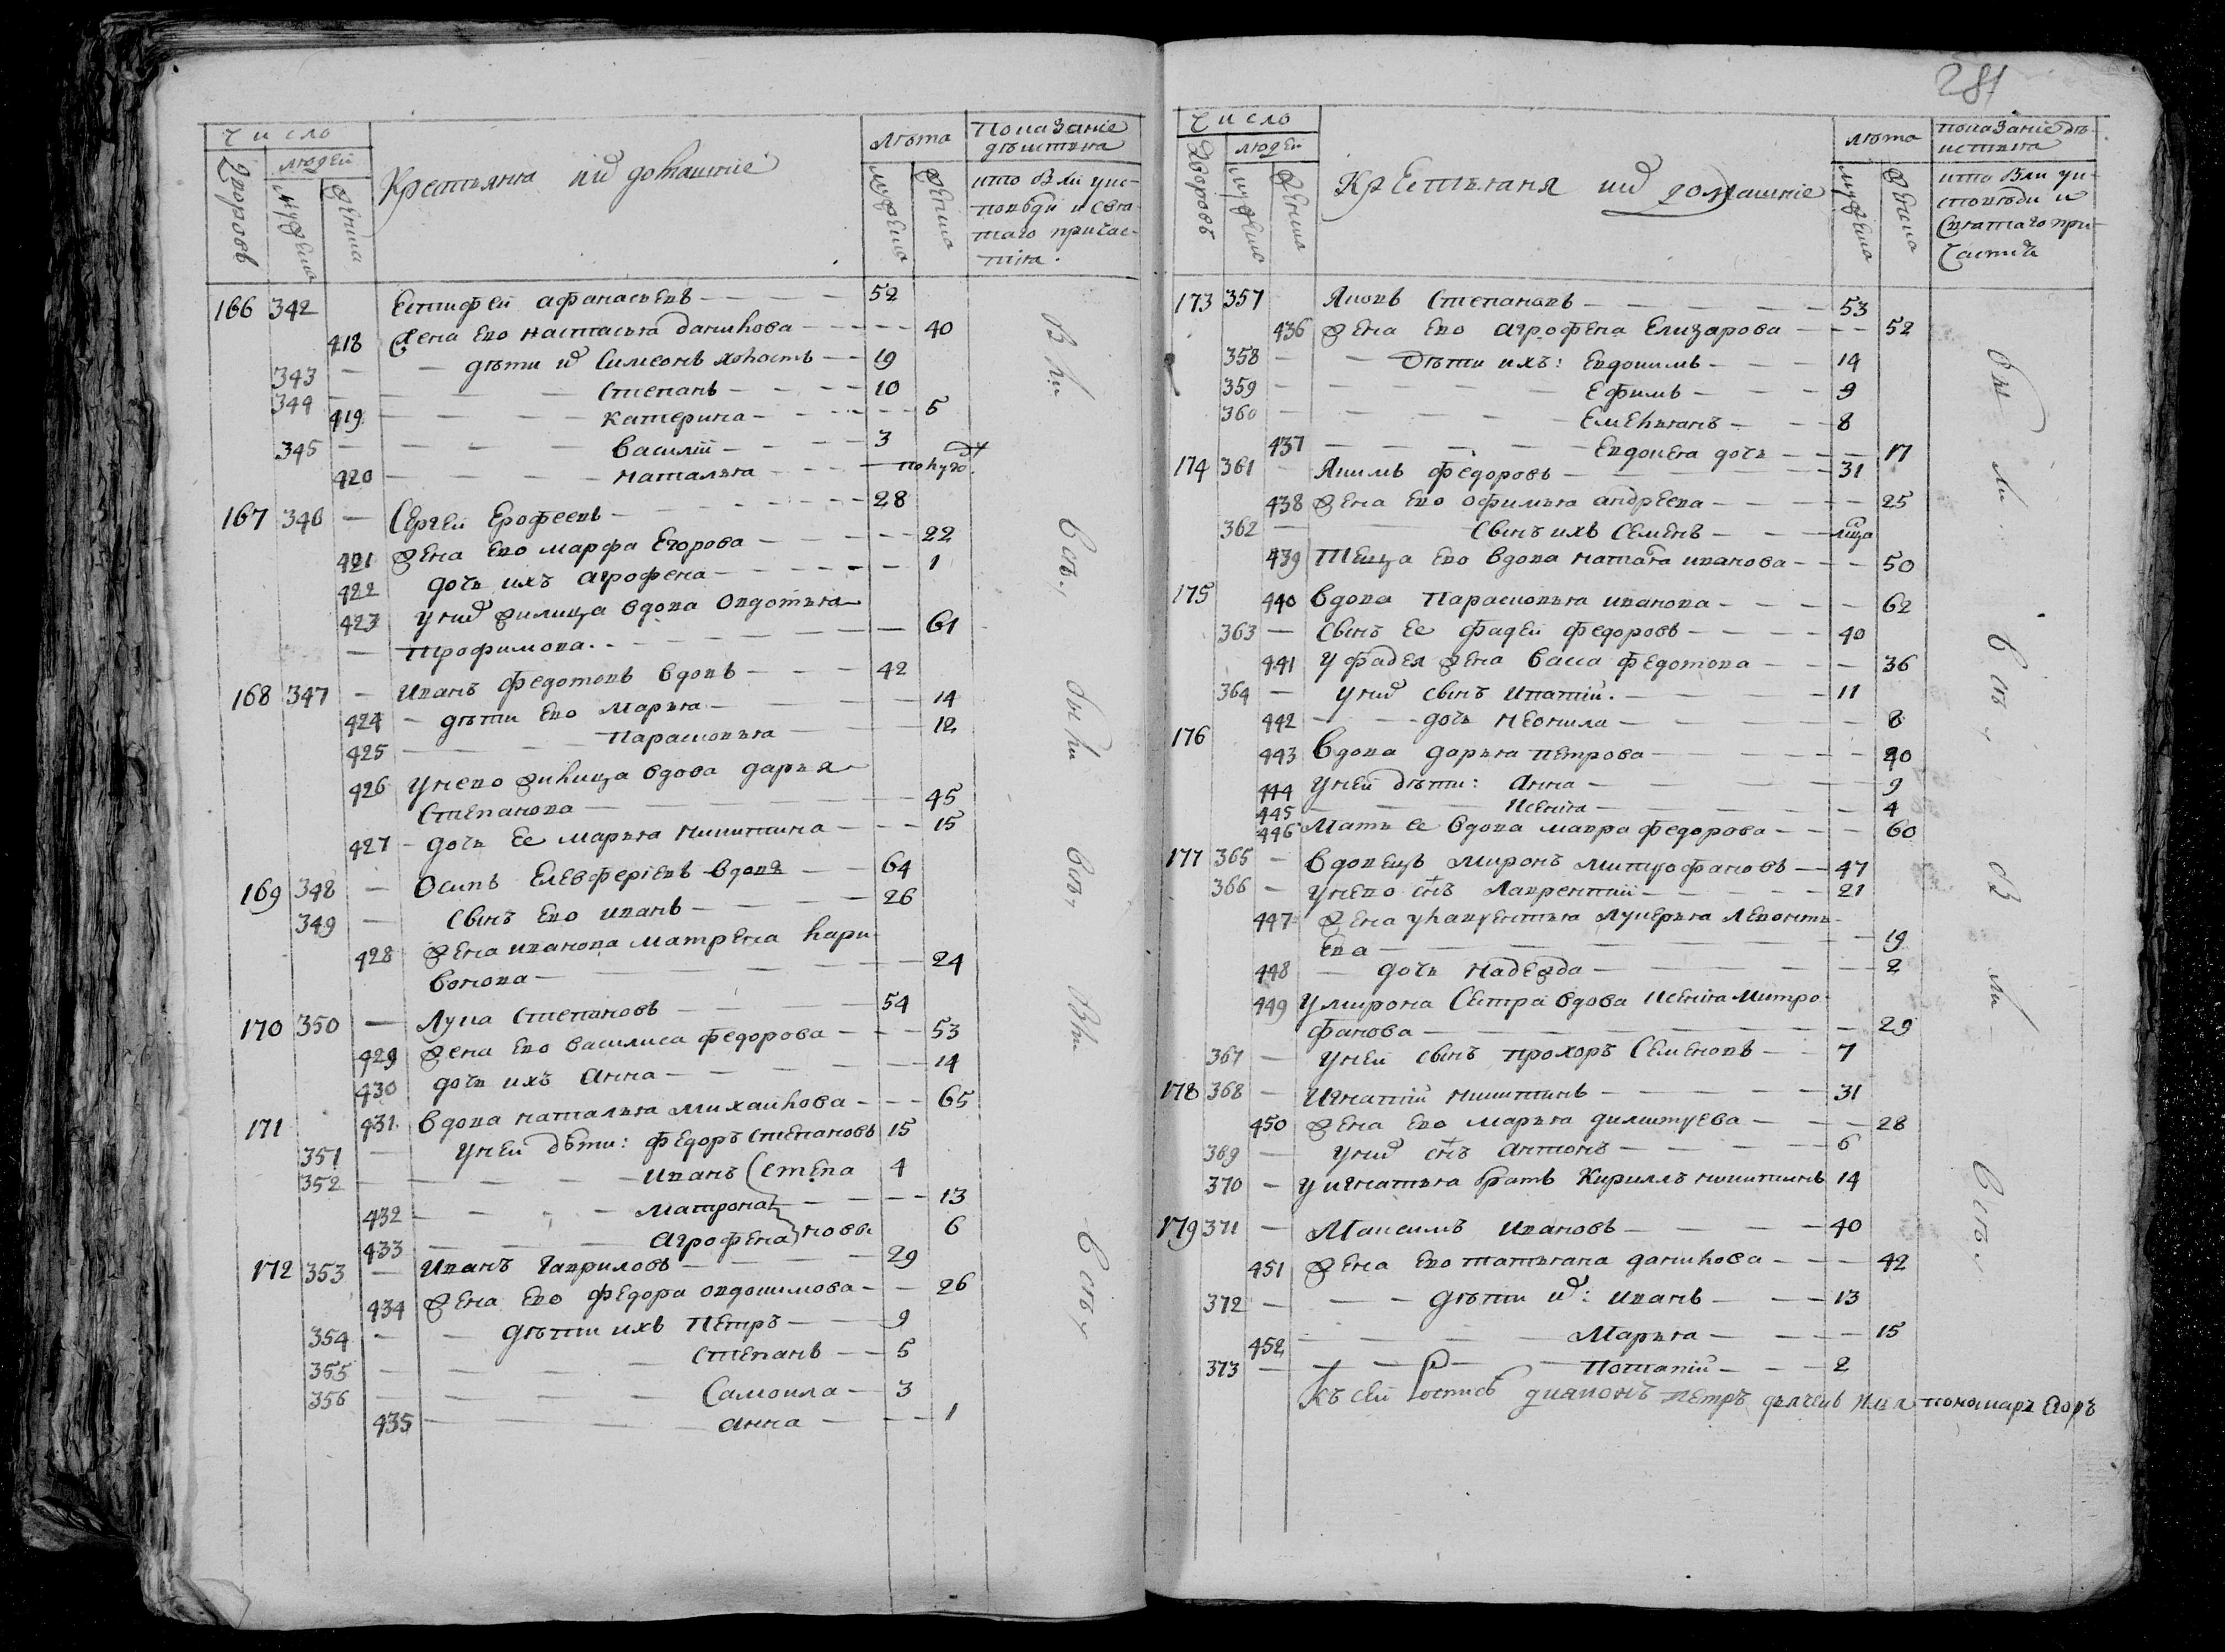 Число
людей
Дворовъ
мужеска
женска
Крестьяня и ихъ домашніе
лѣта
мужеска
женска
показаніе
дѣиства
кто былъ у ис-
повѣди и свя-
таго причас-
тия.
166 342 Естифеи афанасьевъ 52
418 Жена ево настасья данилова 40
343 дѣти ихъ Симеонъ холостъ 19
344 Степанъ 10
419 катерина 5
345 василіи 3
420 наталья полуго.
167 346 Сергеи Ерофеевъ 28
421 Жена ево марфа Егорова 22
422 дочь ихъ агрофена 1
423 у нихъ жилица вдова Овдотья
трофимова 61
168 347 иванъ федотовъ вдовъ 42
424 дѣти ево Марья 14
425 парасковья 12
426 у нево жилица вдова дарья
Степанова 45
427 дочь ее марья никитина 15
169 348 Осипъ Елевферіевъ вдовъ 64
349 сынъ ево иванъ 26
428 Жена иванова матрена лари-
вонова 24
170 350 Лука степановъ 54
429 Жена ево василиса федорова 53
430 дочь ихъ Анна 14
171 431 вдова наталья михаилова 65
351 у неи дѣти: федоръ степановъ 15
352 иванъ степа 4
432 матрона 13
433 агрофена новы 6
172 353 иванъ гавриловъ 29
434 Жена ево федора овдокимова 26
354 дѣти ихъ петръ 9
355 степанъ 5
356 Самоила 3
435 анна 1
Были вси, были вси, были вси,
281
Число
людей
Дворовъ
мужеска
женска
Крестьяня и ихъ домашніе
лѣта
мужеска
женска
показаніе дѣ-
иства
кто былъ у и-
сповѣди и
Святаго при-
частия
173 357 Яковъ Степановъ 53
436 Жена ево агрофена Елизарова 52
358 дѣти ихъ: Евдокимъ 14
359 Ефимъ 9
360 Емельянъ 8
437 Евдокея дочь 17
174 361 Якимъ федоровъ 31
438 Жена ево офимья андреева 25
362 Сынъ ихъ Семенъ
439 теща ево вдова наталя иванова 50
175 440 вдова парасковья иванова 62
363 Сынъ ее фадеи федоровъ 40
441 у фадея жена васса федотова 36
364 у нихъ сынъ ипатіи. 11
442 дочь неонила 8
176 443 вдова дарья петрова 40
444 у неи дѣти: анна 9
445 ксенія 4
446 Мать ее вдова мавра федорова 60
177 365 вдовецъ миронъ митрофановъ 47
366 у нево снъ лаврентіи 21
447 Жена у лаврентья лукерья леонть-
ева 19
448 дочь надежда 2
449 у мирона сестра вдова ксенія митро-
фанова 29
367 у неи сынъ прохоръ Семеновъ 7
178 368 игнатіи никитинъ 31
450 Жена ево марья дмитрева 28
369 у нихъ снъ антонъ 6
370 у игнатья братъ Кириллъ никитинъ 14
179 371 Максимъ ивановъ 40
451 Жена ево татьяна данилова 42
372 дѣти ихъ: иванъ 13
452 Марья 15
373 потапіи 2
Были вси, Были вси.
Къ сеи росписѣ дияконъ петръ дьячекъ илья пономарь егоръ